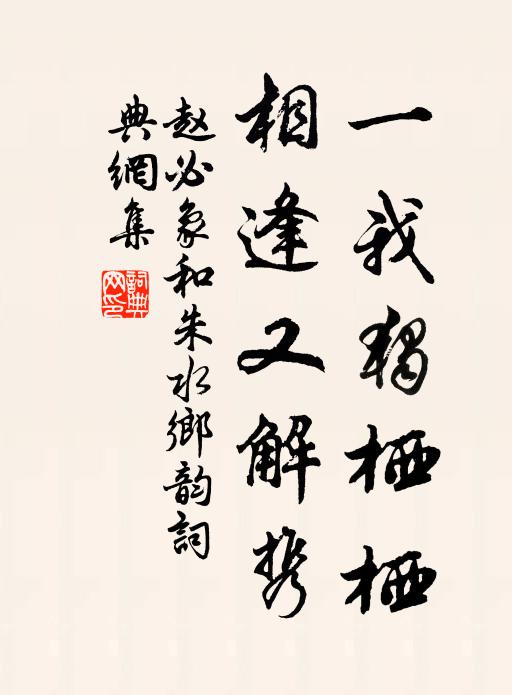 一我獨栖栖
相逢又解携
赵必象和朱水鄉韵詞
典網集
詞典網印